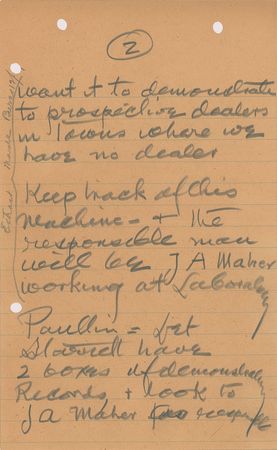 2
want it to demonstrate
to prospective dealers
in Towns where we
have no dealer
Keep track of this
Machine - + the
responsible man
will be J A Maher
working at Laboratory
Paullin = Let
Starrett have
2 boxes of demonstrating
Records + look to
J A Maher for